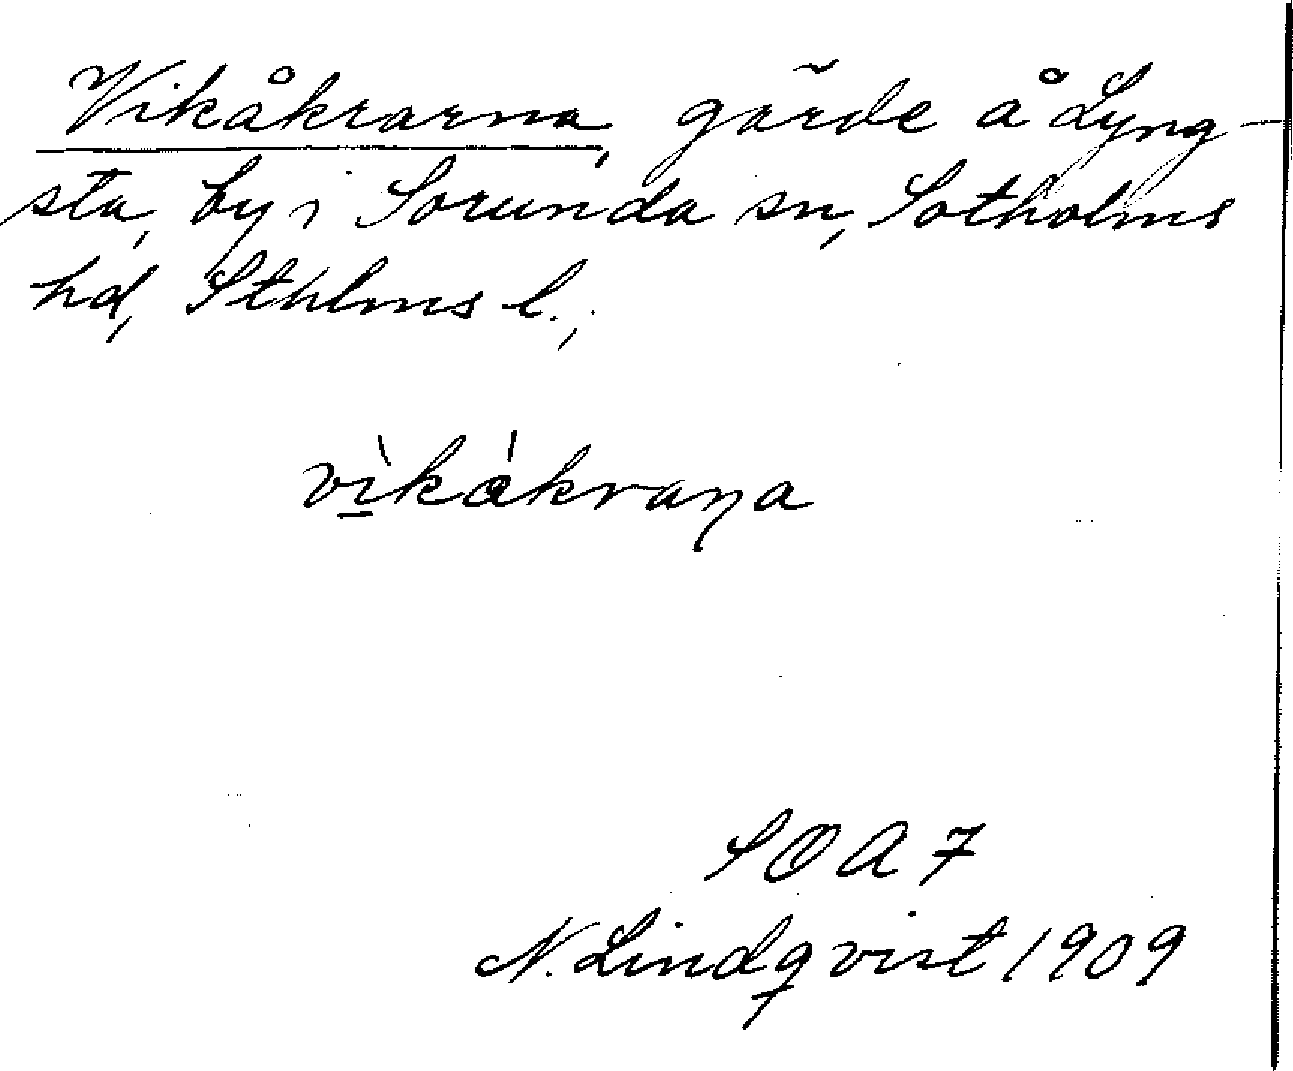 Vikåkrarna, gärde å Lyng-
sta, by i Sorunda sn, Sotholms
hd, Sthlms l.,
vìkákraṇa
SOA 7
N. Lindqvist 1909